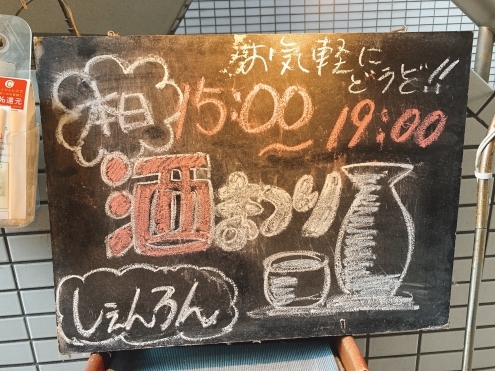 お気軽に
どうぞ!!
本日 15:00
~ 19:00
酒まつり
しぇんろん
%還元